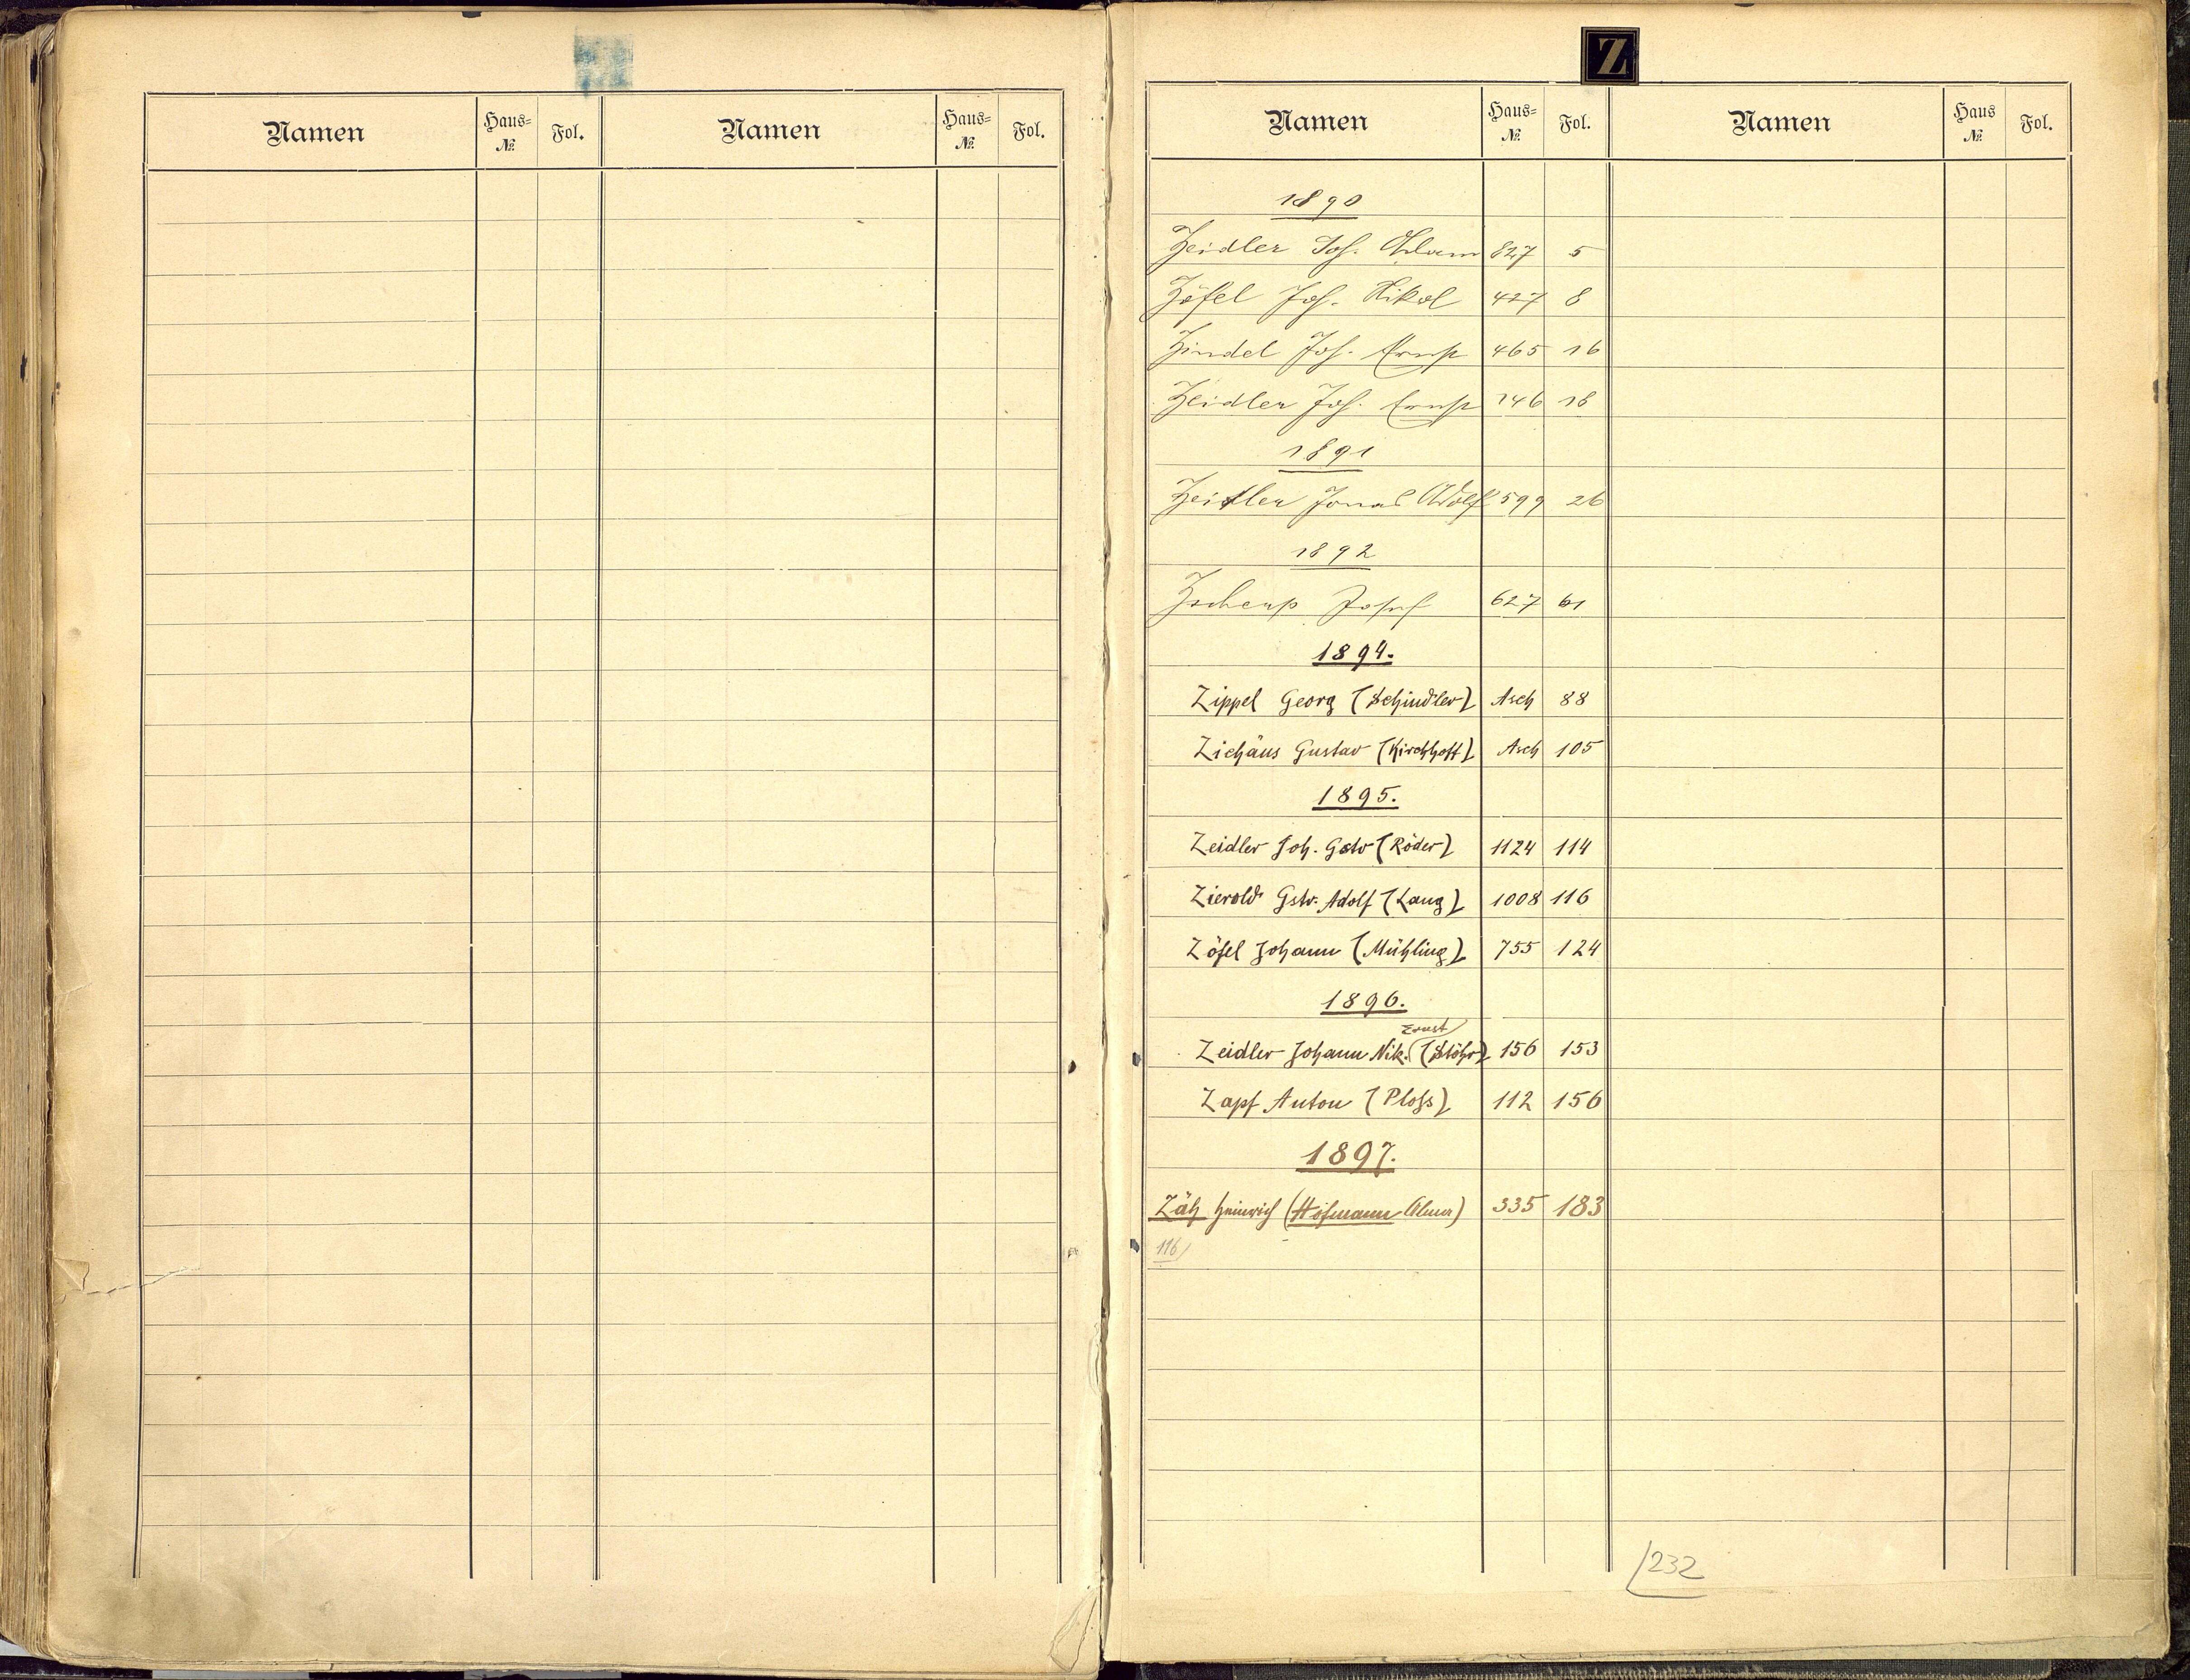 Namen Haus= № Fol. Namen Haus= № Fol.
Z
Namen Haus= № Fol. Namen Haus № Fol.
1890
Zeidler Joh. Adam 827 5
Zöfel Joh. Nikol 427 8
Zindel Joh. Ernst 465 16
Zeidler Joh. Ernst 146 18
1891
Zeidler Jonas Adolf 599 26
1892
Josef 627 61
1894.
Zippel Georg (Schindler) Asch 88
Ziehäus Gustav (Kirchhoff) Asch 105
1895.
Zeidler Joh. Gstv (Röder) 1124 114
Zierold Gstv. Adolf (Lang) 1008 116
Zöfel Johann (Mühling) 755 124
1896.
Ernst
Zeidler Johann Nik. (Stöhr) 156 153
Zapf Anton (Ploss) 112 156
1897.
Zäh Heinrich (Hofmann 335 183
116
232